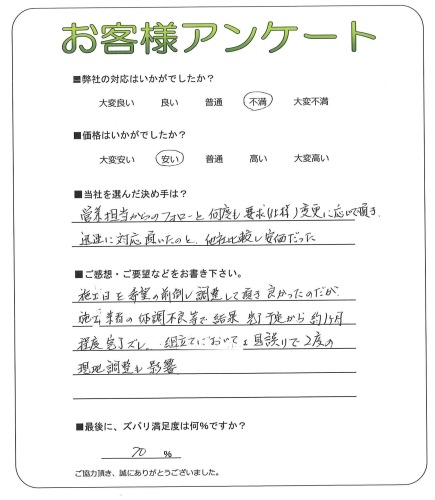 お客様アンケート
■弊社の対応はいかがでしたか?
大変良い 良い 普通 不満 大変不満
■価格はいかがでしたか?
大変安い 安い 普通 高い 大変高い
■当社を選んだ決め手は?
営業担当からのフォローと何度も要求(仕様)変更に応いて頂き、
迅速に対応頂いたのと、他社比較し安価だった
■ご感想・ご要望などをお書き下さい。
施工日を希望の前倒し調整して頂き良かったのだが、
施工業者の体調不良等で結果完了予定から約1ヶ月
程度完了ズレ。組立てにおいても見誤りで2度の
現地調整も影響
■最後に、ズバリ満足度は何%ですか?
70 %
ご協力頂き、誠にありがとうございました。